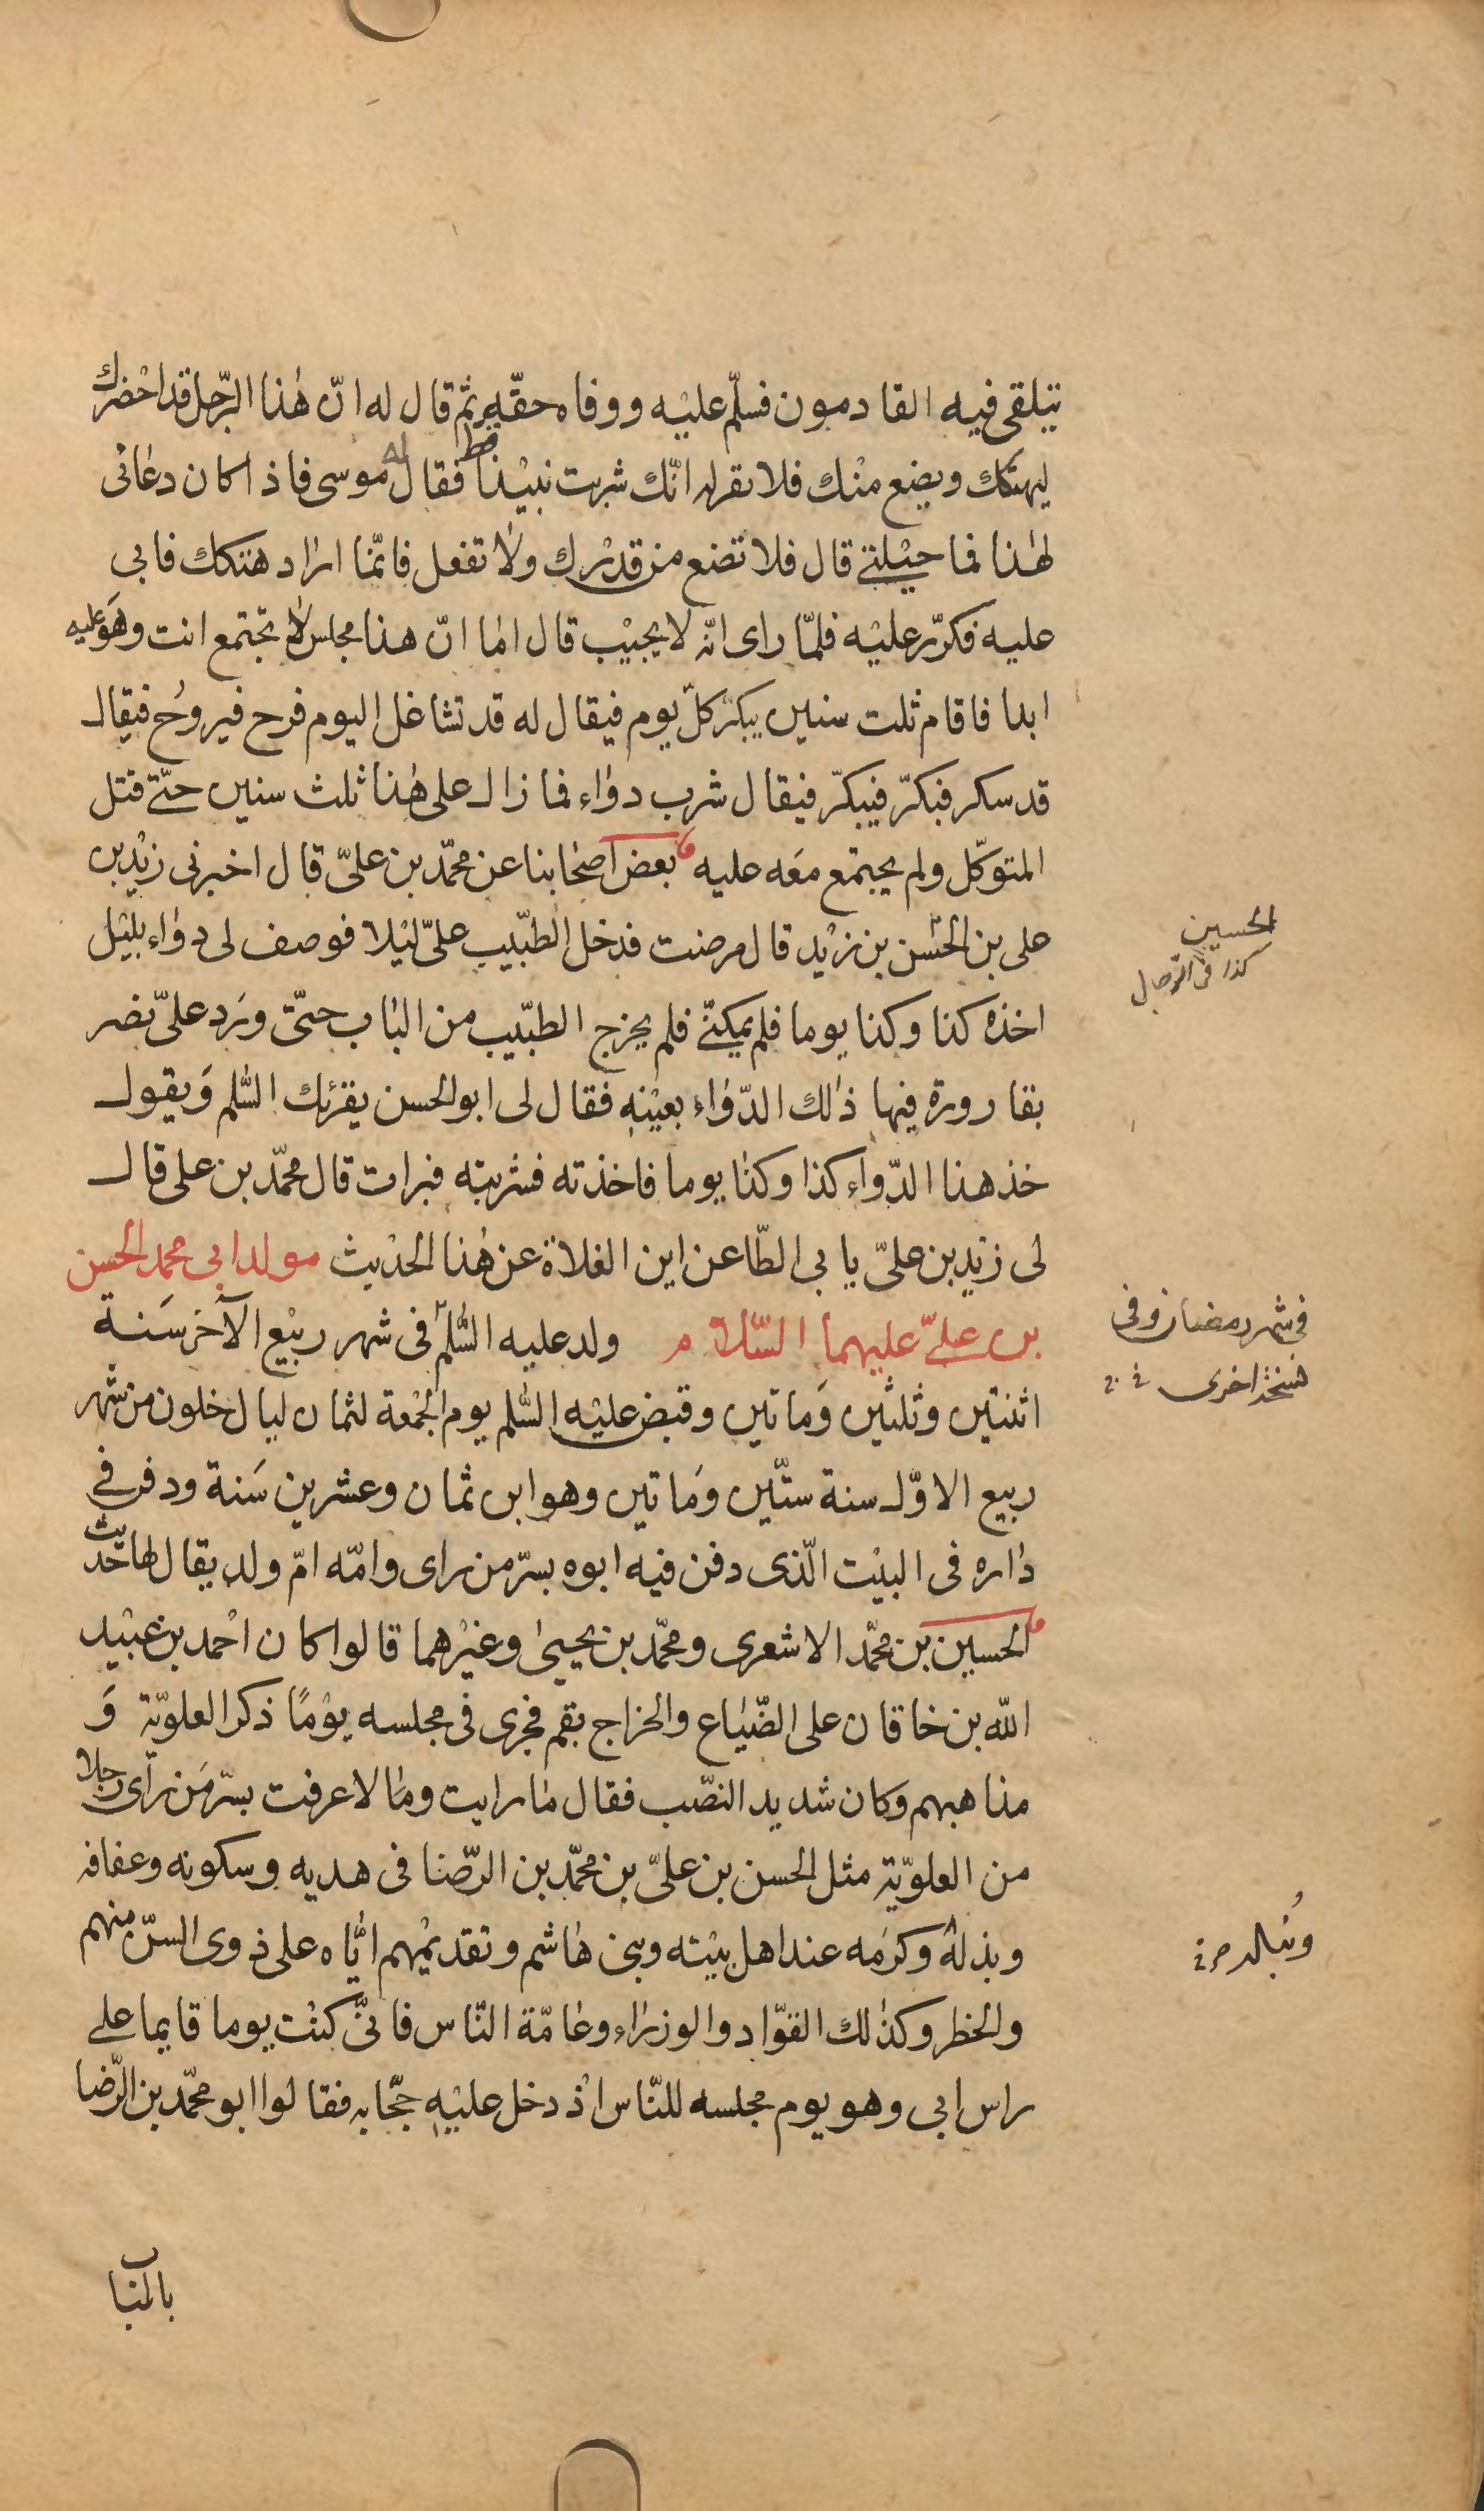 يتلقى فيه القادمون فسلّم عليه ووفاه حقّه ثم قال له انّ هذا الرّجل قد احضرك
ليهتكك ويضع منك فلا تقر له انّك شربت نبيذا قط فقال له موسى فاذا كان دعانى
لهذا فما حيلتى قال فلا تضع من قدرك ولا تفعل فانّما اراد هتكك فابى
عليه فكرّر عليه فلمّا راى انّه لا يجيب قال اما انّ هذا مجلس لا تجتمع انت وهو عليه
ابدا فاقام ثلث سنين يبكّر كلّ يوم فيقال له قد تشاغل اليوم فرح فيروح فيقال
قد سكر فبكّر فيبكّر فيقال شرب دواء فما زال على هذا ثلث سنين حتّى قتل
المتوكّل ولم يجتمع معه عليه بعض اصحابنا عن محمّد بن علىّ قال اخبرنى زيد بن
على بن الحسن بن زيد قال مرضت فدخل الطّبيب علىّ ليلا فوصف لى دواء بليل
الحسين
كذا فى الرجال
اخذه كذا وكذا يوما فلم يمكنّى فلم يخرج الطبّيب من الباب حتّى ورد علىّ نصر
بقارورة فيها ذلك الدّواء بعينه فقال لى ابو الحسن يقرئك السّلم ويقول
خذ هذا الدّواء كذا وكذا يوما فاخذته فشربته فبرات قال محمّد بن على قال
لى زيد بن علىّ يابى الطّاعن اين الغلاة عن هذا الحديث مولد ابى محمد الحسن
بن علىّ عليهما السّلام ولد عليه السّلم فى شهر ربيع الآخر سنة
فى شهر رمضان وفى
نسخة اخرى
اثنتين وثلثين وماتين وقبض عليه السّلم يوم الجمعة لثمان ليال خلون من شهر
ربيع الاوّل سنة ستّين وماتين وهو ابن ثمان وعشرين سنة ودفن فى
داره فى البيت الّذى دفن فيه ابوه بسرّ من راى وامّه امّ ولد يقال لها حديث
الحسين بن محمّد الاشعرى ومحمّد بن يحيى وغيرهما قالوا كان احمد بن عبيد
الله بن خاقان على الضّياع والخراج بقم فجرى فى مجلسه يوما ذكر العلويّة و
مذاهبهم وكان شديد النصّب فقال ما رايت وما لا عرفت بسرّ من راى رجلا
من العلويّة مثل الحسن بن علىّ بن محمّد بن الرّضا فى هديه وسكونه وعفافه
وبذله وكرمه عند اهل بيته وبنى هاشم وتقديمهم ايّاه على ذوى السنّ منهم
ونبله
والخطر وكذلك القوّاد والوزراء وعامّة النّاس فانىّ كنت يوما قايما على
راس ابى وهو يوم مجلسه للنّاس اذ دخل عليه حجّابه فقالوا ابو محمّد بن الرّضا
بالباب